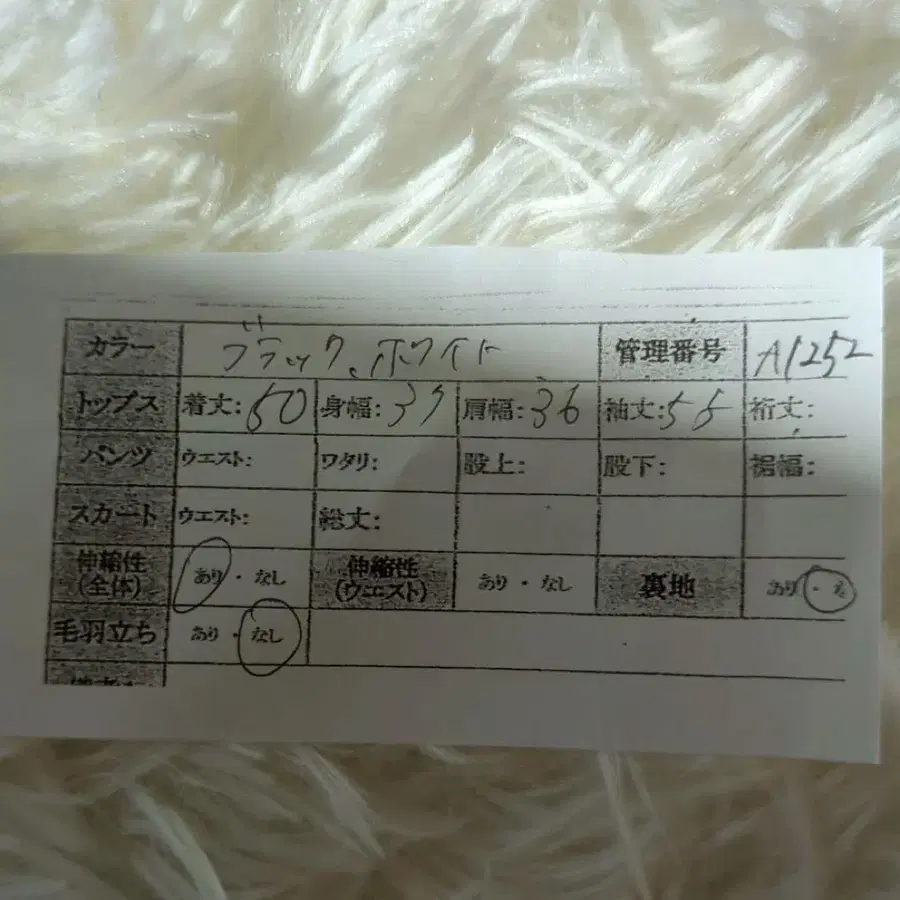 カラー ブラック、ホワイト 管理番号 A1252
トップス 着丈: 60 身幅: 37 肩幅: 36 袖丈: 55 裄丈:
パンツ ウエスト: ワタリ: 股上: 股下: 裾幅:
スカート ウエスト: 総丈:
伸縮性 伸縮性
(全体) あり・なし (ウエスト) あり・なし 裏地 あり・な
毛羽立ち あり・なし